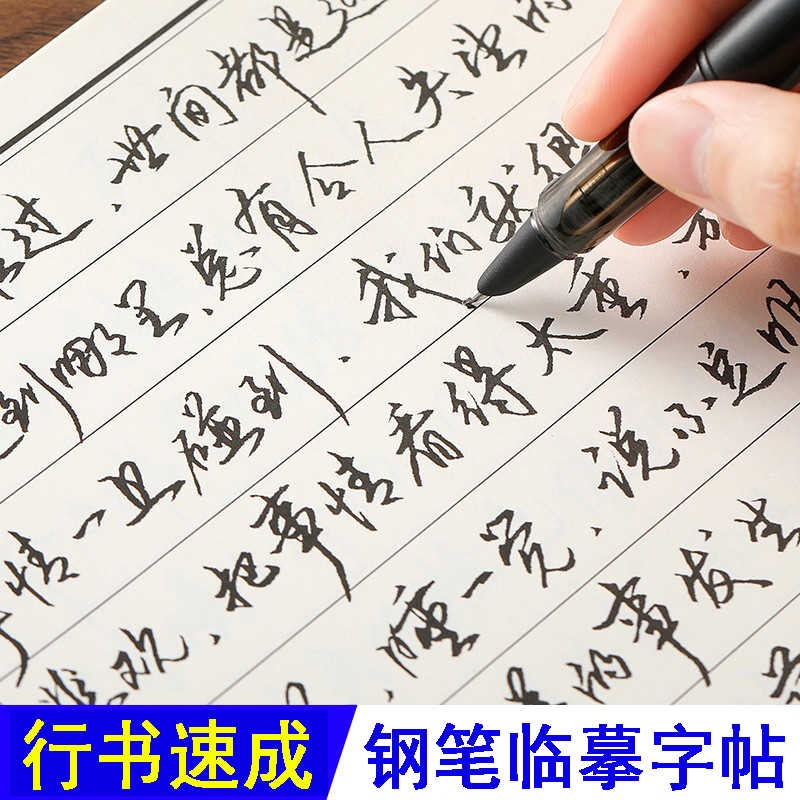 过、世间都是
到哪里、总有令人失望的
情一旦碰到、我们就
把事情看得太重、
睡一觉、说不定明
的事发生
行书速成 钢笔临摹字帖